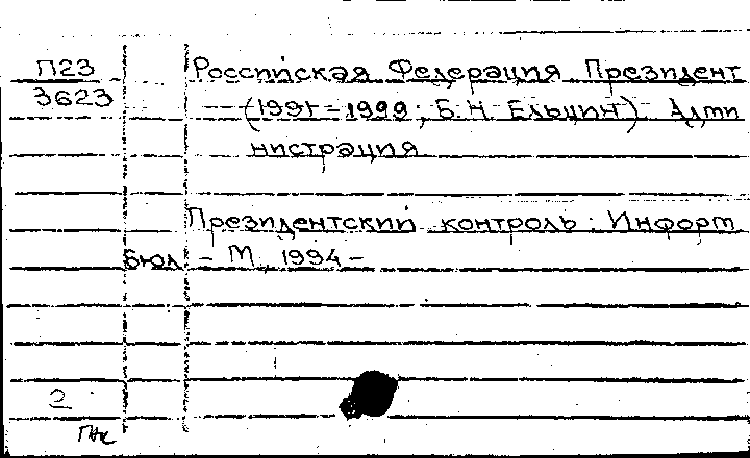 П23
3623
Российская Федерация. Президент
(1991-1999; Б. Н. Ельцин). Адми
нистрация
Президентский контроль: Информ
бюл - М, 1994 -
2